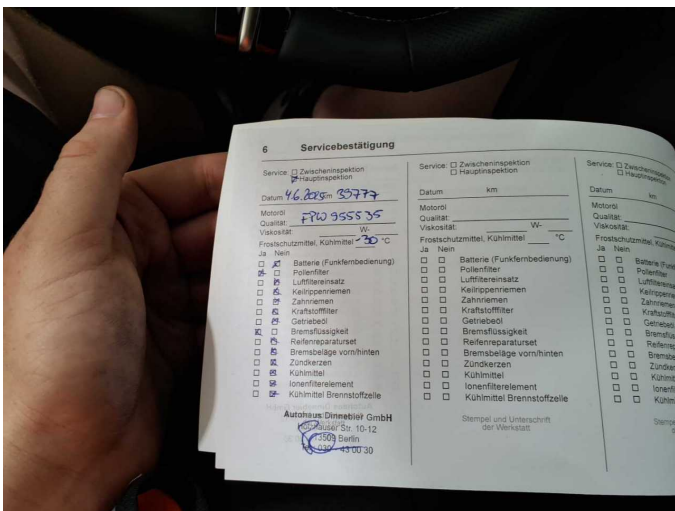 6 Servicebestätigung
Service: Zwischeninspektion
Hauptinspektion
Datum 4.6.2025 km 39777
Motoröl
Qualität: FPW955535
Viskosität: W-
Frostschutzmittel, Kühlmittel -30 °C
Ja Nein
Batterie (Funkfernbedienung)
Pollenfilter
Luftfiltereinsatz
Keilrippenriemen
Zahnriemen
Kraftstofffilter
Getriebeöl
Bremsflüssigkeit
Reifenreparaturset
Bremsbeläge vorn/hinten
Zündkerzen
Kühlmittel
Ionenfilterelement
Kühlmittel Brennstoffzelle
Autohaus Dinnebier GmbH
Str. 10-12
13509 Berlin
43 00 30
Service: Zwischeninspektion
Hauptinspektion
Datum km
Motoröl
Qualität:
Viskosität: W-
Frostschutzmittel, Kühlmittel °C
Ja Nein
Batterie (Funkfernbedienung)
Pollenfilter
Luftfiltereinsatz
Keilrippenriemen
Zahnriemen
Kraftstofffilter
Getriebeöl
Bremsflüssigkeit
Reifenreparaturset
Bremsbeläge vorn/hinten
Zündkerzen
Kühlmittel
Ionenfilterelement
Kühlmittel Brennstoffzelle
Stempel und Unterschrift
der Werkstatt
Service:
Datum km
Motoröl
Qualität:
Viskosität:
Frostschutzmittel,
Ja Nein
Batterie
Pollenfilter